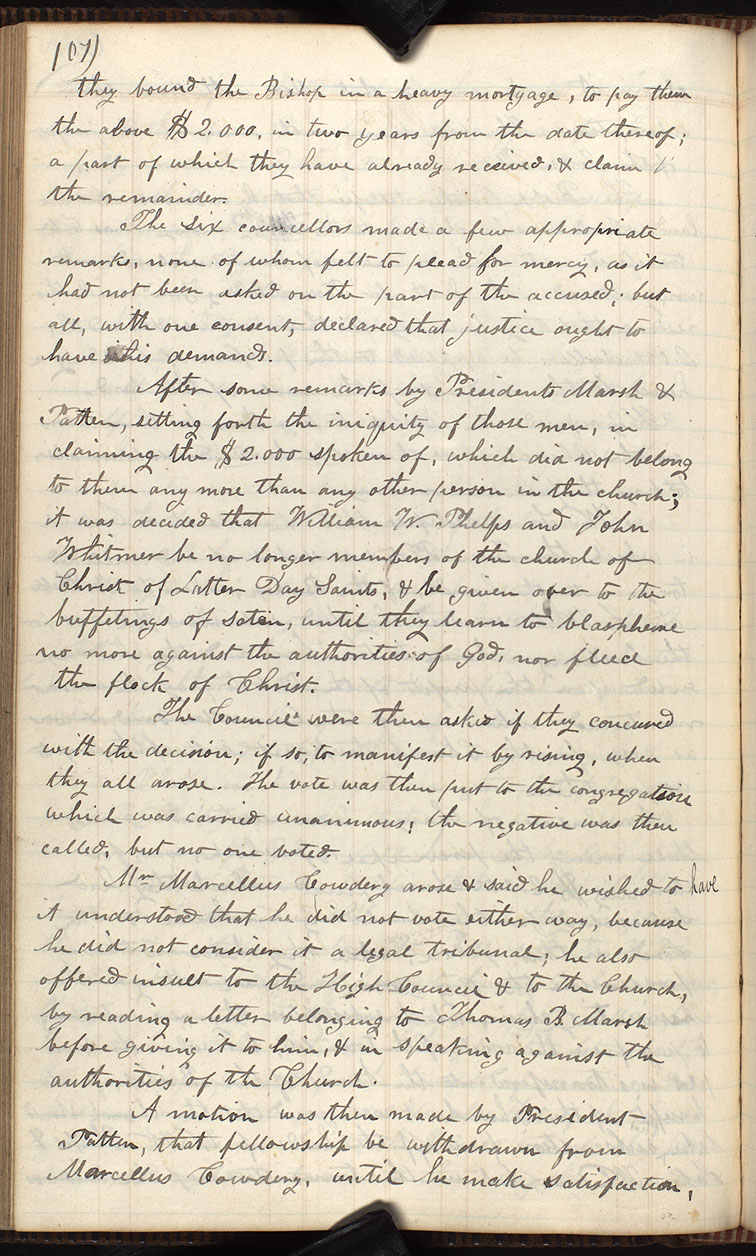 107)
they bound the Bishop in a heavy mortgage, to pay them
the above $2.000, in two years from the date thereof;
a part of which they have already received, & claim
the remainder.
The six councellors made a few appropriate
remarks, none of whom felt to plead for mercy, as it
had not been asked on the part of the accused; but
all, with one consent, declared that justice ought to
have his demands.
After some remarks by Presidents Marsh &
Patten, setting forth the iniquity of those men, in
claiming the $2.000 spoken of, which did not belong
to them any more than any other person in the church;
it was decided that William W. Phelps and John
Whitmer be no longer members of the church of
Christ of Latter Day Saints, & be given over to the
buffetings of satan, until they learn to blaspheme
no more against the authorities of God, nor fleed
the flock of Christ.
The Council were then asked if they concured
with the decision; if so, to manifest it by rising, when
they all arose. The vote was then put to the congregation
which was carried unanimous; the negative was then
called, but no one voted.
Mr Marcellus Cowdery arose & said he wished to have
it understood that he did not vote either way, because
he did not consider it a legal tribunal; he also
offered insult to the High Council & to the Church,
by reading a letter belonging to Thomas B. Marsh
before giving it to him, & in speaking against the
authorities of the Church.
A motion was then made by President
Patten, that fellowship be withdrawn from
Marcellus Cowdery, until he make satisfaction,